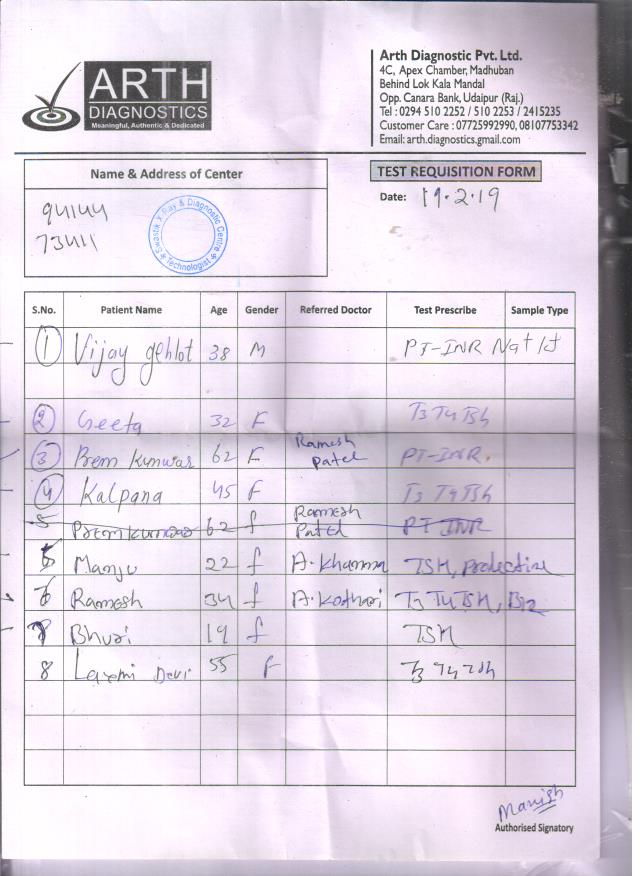 ARTH
DIAGNOSTICS
Meaningful, Authentic & Dedicated
Arth Diagnostic Pvt. Ltd.
4C, Apex Chamber, Madhuban
Behind Lok Kala Mandal
Opp. Canara Bank, Udaipur (Raj.)
Tel : 0294 510 2252 / 510 2253 / 2415235
Customer Care : 07725992990, 08107753342
Email: arth.diagnostics.gmail.com
Name & Address of Center
TEST REQUISITION FORM
Date: 19.2.19
94144
73411
Swastik X-Ray & Diagnostic Centre
Technologist
S.No. Patient Name Age Gender Referred Doctor Test Prescribe Sample Type
1 Vijay gehlot 38 M PT-INR Na+/
2 Geeta 32 F T3 T4 Tsh
3 Prem Kunwar 62 F Ramesh Patel PT-INR.
4 Kalpana 45 F T3 T4 TSh
5 Prem Kunwar 62 f Ramesh Patel PT INR
Manju 22 f A. Khamma TSH, Prolectine
6 Ramesh 34 f A. Kothari T3 T4 TSH, B12
Bhuri 19 f TSH
8 Laxmi Devi 55 F T3 T4 TSh
Manish
Authorised Signatory